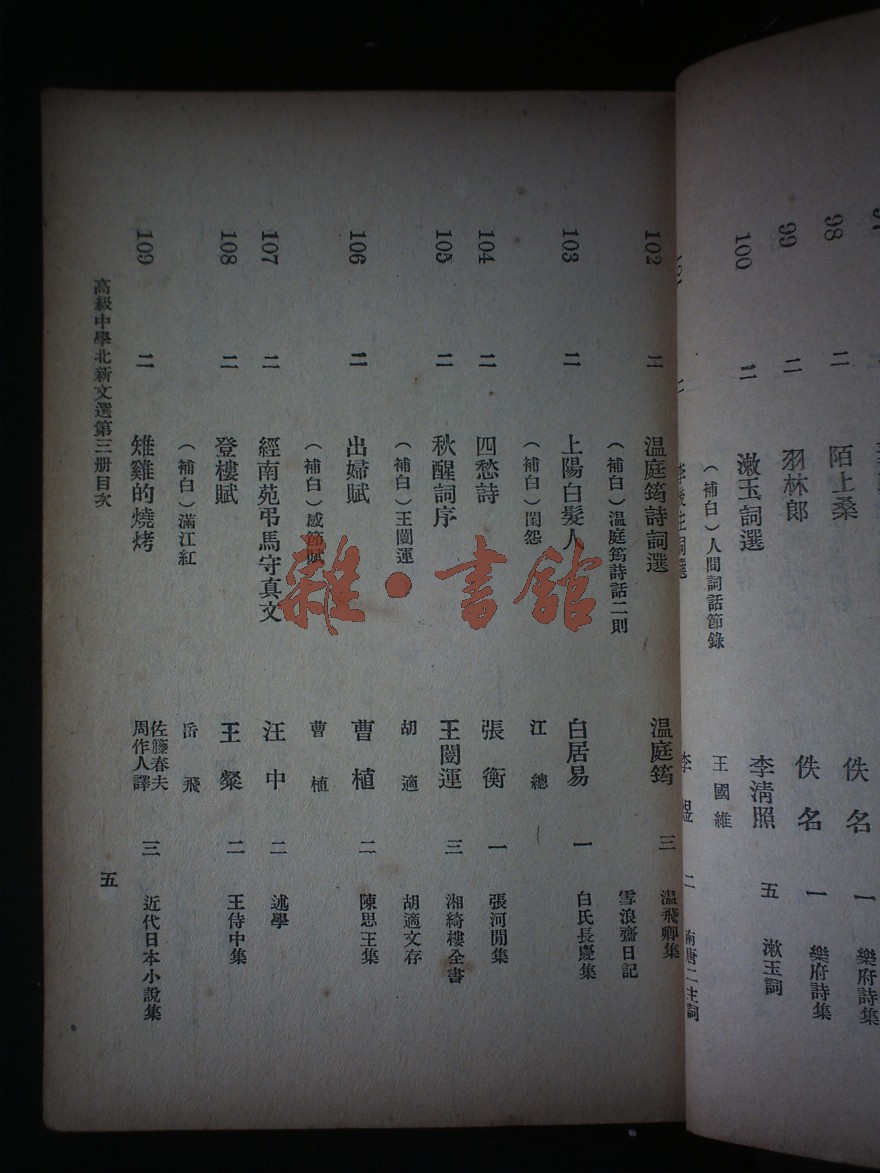 98 二 陌上桑 佚名 一 樂府詩集
99 二 羽林郎 佚名 一 樂府詩集
100 二 漱玉詞選 李淸照 五 漱玉詞
(補白)人間詞話節錄 王國維
二 李後主詞選 李煜 二 南唐二主詞
102 二 温庭筠詩詞選 温庭筠 三 温飛卿集
(補白)温庭筠詩話二則 雪浪齋日記
103 二 上陽白髮人 白居易 一 白氏長慶集
(補白)閨怨 江總
104 二 四愁詩 張衡 一 張河閒集
105 二 秋醒詞序 王闓運 三 湘綺樓全書
(補白)王闓運 胡適 胡適文存
106 二 出婦賦 曹植 二 陳思王集
(補白)感節賦 曹植
107 二 經南苑弔馬守真文 汪中 二 述學
108 二 登樓賦 王粲 二 王侍中集
(補白)滿江紅 岳飛
109 二 雉雞的燒烤 佐籐春夫 周作人譯 三 近代日本小說集
高級中學北新文選第三册目次 五
雜·書館